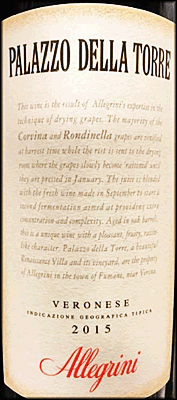 PALAZZO DELLA TORRE
This wine is the result of Allegrini's expertise in the
technique of drying grapes. The majority of the
Corvina and Rondinella grapes are vinified
at harvest time while the rest is sent to the drying
room where the grapes slowly become raisined until
they are pressed in January. The juice is blended
with the fresh wine made in September to start a
second fermentation aimed at providing extra
concentration and complexity. Aged in oak barrels,
this is a unique wine with a pleasant, fruity, raisin-
like character. Palazzo della Torre, a beautiful
Renaissance Villa and its vineyard, are the property
of Allegrini in the town of Fumane, near Verona.
VERONESE
INDICAZIONE GEOGRAFICA TIPICA
2015
Allegrini